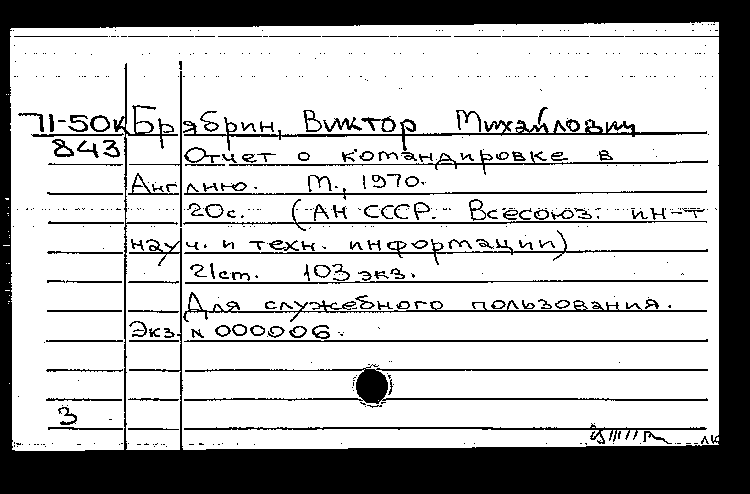 71-50к Брябрин, Виктор Михайлович
843 Отчет о командировке в
Англию. М., 1970.
20с. (АН СССР. Всесоюз. ин-т
науч. и техн. информации)
21см. 103 экз.
Для служебного пользования.
Экз. № 000006.
3